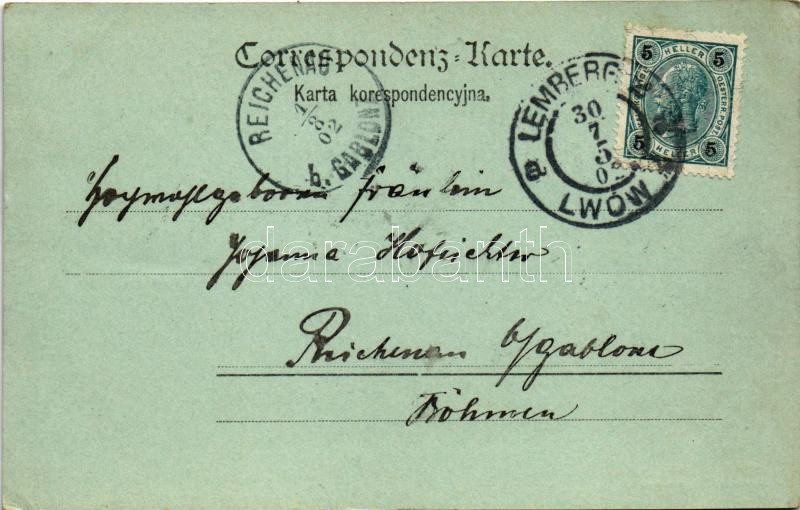 Correspondenz-Karte.
Karta korespondencyjna.
REICHENAU
1/8
02
b. GABLONZ
LEMBERG
30
7
5
02
LWÓW
5 HELLER 5
OESTERR. POST.
5 HELLER 5
Hochwohlgeboren Fräulein
Johanna Hofrichter
Reichenau b/Gablonz
Böhmen
darabanth